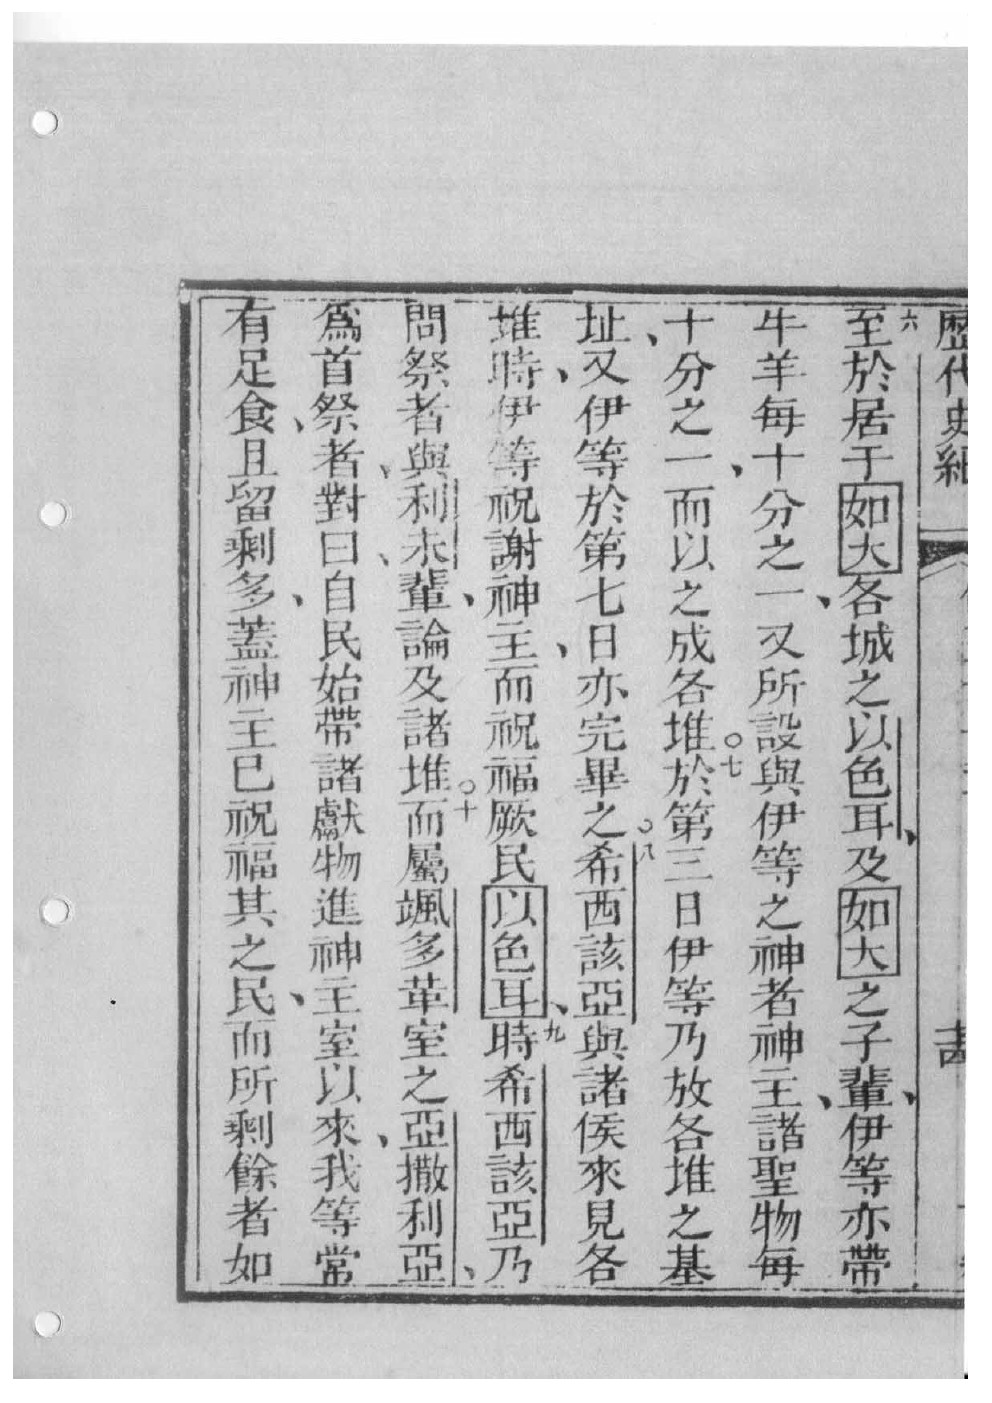 歷代史紀
六至於居于如大各城之以色耳、及如大之子輩、伊等亦帶
牛羊每十分之一、又所設與伊等之神者神主、諸聖物每
十分之一、而以之成各堆○七於第三日伊等乃放各堆之基
址、又伊等於第七日亦完畢之○八希西該亞與諸侯來見各
堆時、伊等祝謝神主、而祝福厥民以色耳、九時希西該亞乃
問祭者與利未輩、論及諸堆○十而屬颯多革室之亞撒利亞、
爲首祭者、對曰、自民始帶諸獻物進神主室以來、我等常
有足食、且留剩多、蓋神主已祝福其之民、而所剩餘者如